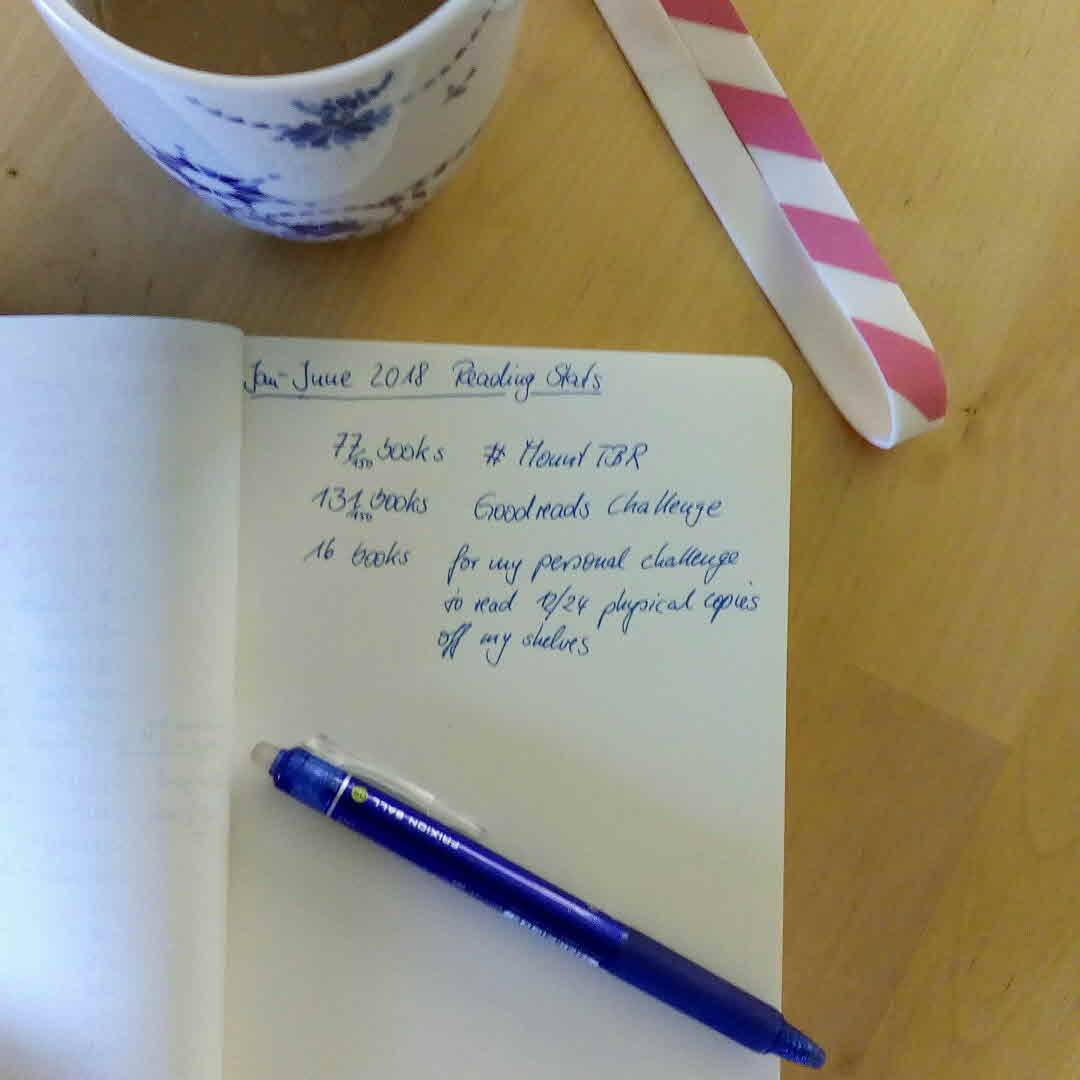 Jan-June 2018 Reading Stats
77/150 books # Mount TBR
131/150 books Goodreads Challenge
16 books for my personal challenge
to read 12/24 physical copies
off my shelves
FRIXION BALL